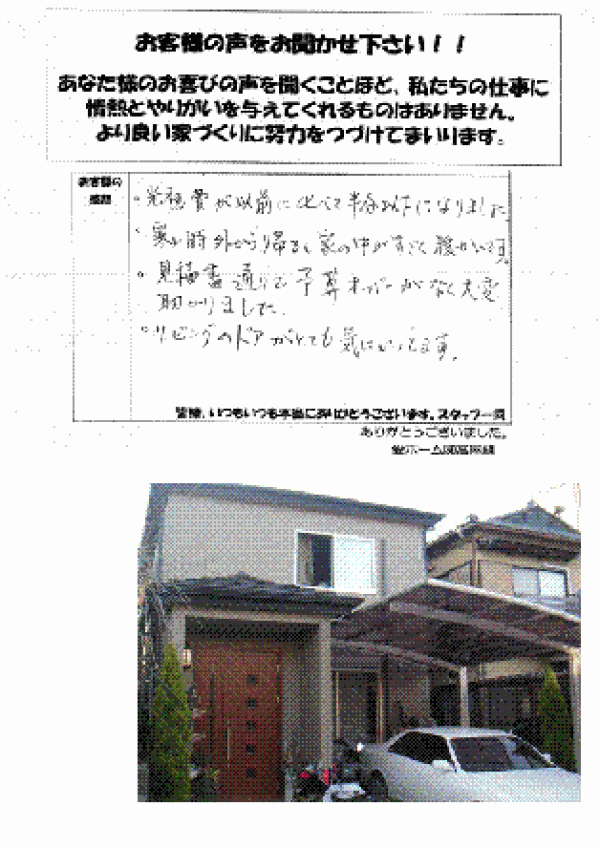 お客様の声をお聞かせ下さい！！
あなた様のお喜びの声を聞くことほど、私たちの仕事に
情熱とやりがいを与えてくれるものはありません。
より良い家づくりに努力をつづけてまいります。
お客様の
感想
・光熱費が以前に比べて半分以下になりました
・寒い時外から帰ると家の中がすごく暖かい
・見積書通りで予算オーバーがなく大変
助かりました。
・リビングのドアがとても気に入ってます。
皆様、いつもいつも本当にありがとうございます。スタッフ一同
ありがとうございました。